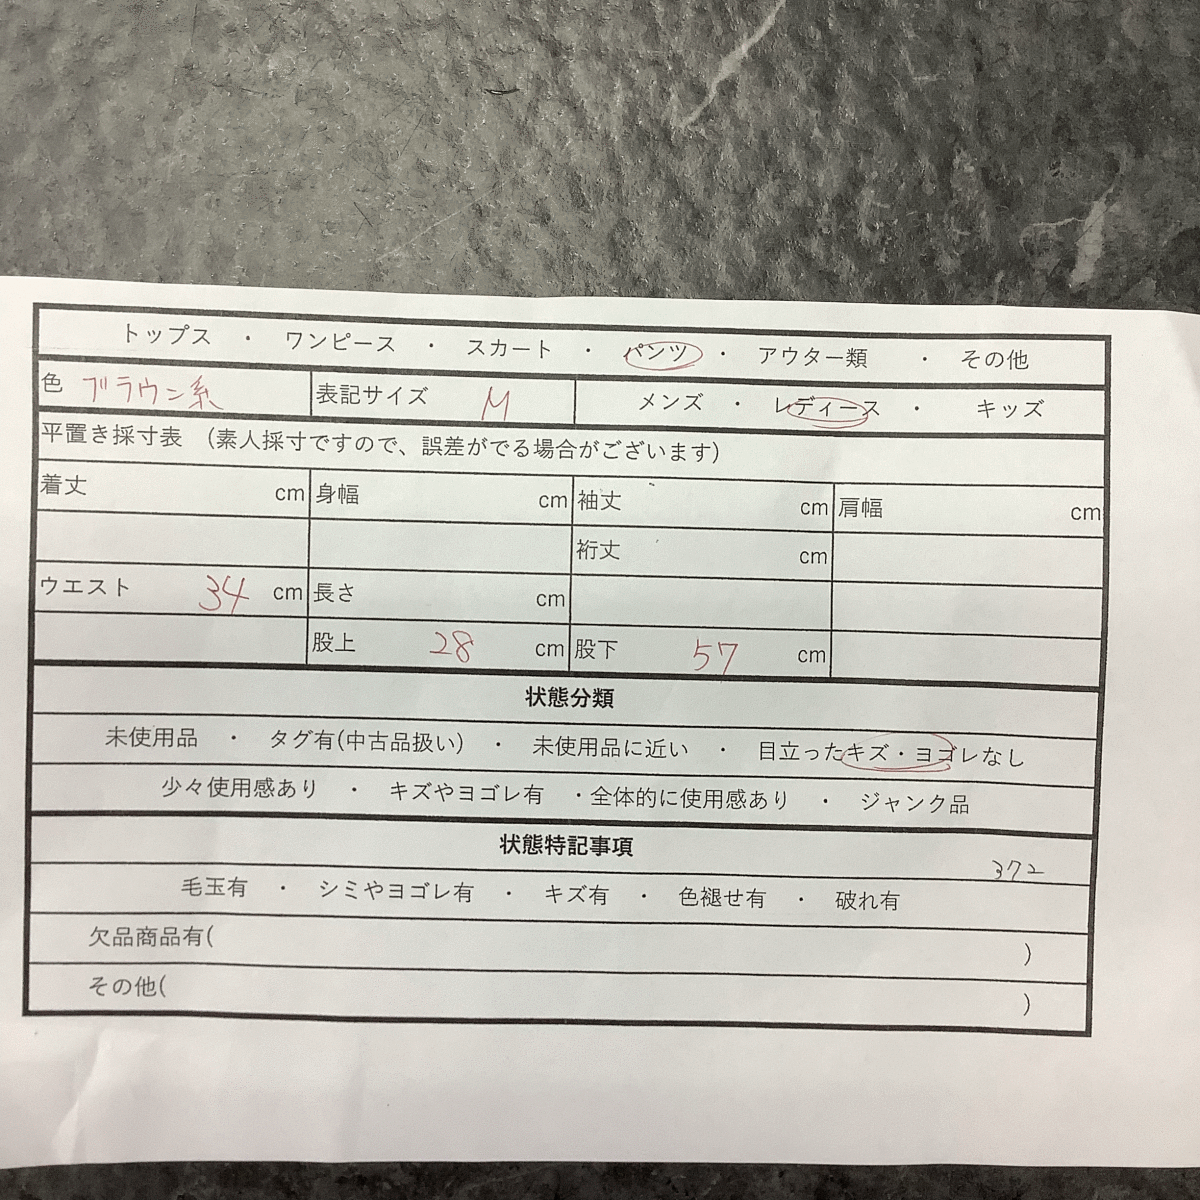 トップス ・ ワンピース ・ スカート ・ パンツ ・ アウター類 ・ その他
色 ブラウン系 表記サイズ M メンズ ・ レディース ・ キッズ
平置き採寸表 (素人採寸ですので、誤差がでる場合がございます)
着丈 cm 身幅 cm 袖丈 cm 肩幅 cm
裄丈 cm
ウエスト 34 cm 長さ cm
股上 28 cm 股下 57 cm
状態分類
未使用品 ・ タグ有(中古品扱い) ・ 未使用品に近い ・ 目立ったキズ・ヨゴレなし
少々使用感あり ・ キズやヨゴレ有 ・全体的に使用感あり ・ ジャンク品
状態特記事項
372
毛玉有 ・ シミやヨゴレ有 ・ キズ有 ・ 色褪せ有 ・ 破れ有
欠品商品有( )
その他( )